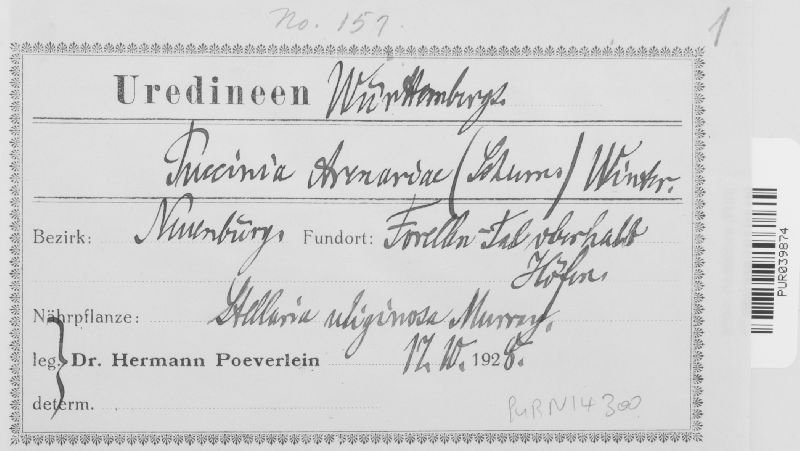 No. 157.
1
Uredineen Württembergs.
Puccinia Arenariae (Schum.) Winter.
Bezirk: Neuenbürg. Fundort: Forellen-Tal oberhalb
Höfen.
Nährpflanze: Stellaria uliginosa Murray.
leg. Dr. Hermann Poeverlein 17. 10. 1928.
determ.
PURN14300
PUR039874